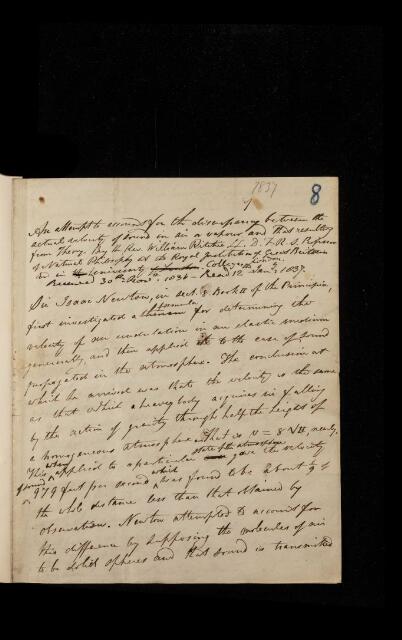 1837
8
An attempt to account for the discrepancy between the
actual velocity of sound in air or vapour and that resulting
from Theory. By the Rev. William Ritchie LL.D. F.R.S. Professor
of Natural Philosophy at the Royal Institution of Great Britain
and in the University of London College London.
Received 30th Novr. 1836 - Read 12th Jany. 1837.
Sir Isaac Newton, in sect. 8 Book II of the Principia,
first investigated a formula for determining the
velocity of an undulation in an elastic medium
generally, and then applied it to the case of sound
propagated in the atmosphere. The conclusion at
which he arrived was that the velocity is the same
as that which a heavy body acquires in falling
by the action of gravity through half the height of
a homogeneous atmosphere, that is v = 8√H, nearly.
This when applied to a particular state of the atmosphere gave the velocity
of sound 979 feet per second, which was found to be about 1/9 of
the whole distance less than that obtained by
observation. Newton attempted to account for
this difference by supposing the molecules of air
to be solid spheres and that sound is transmitted